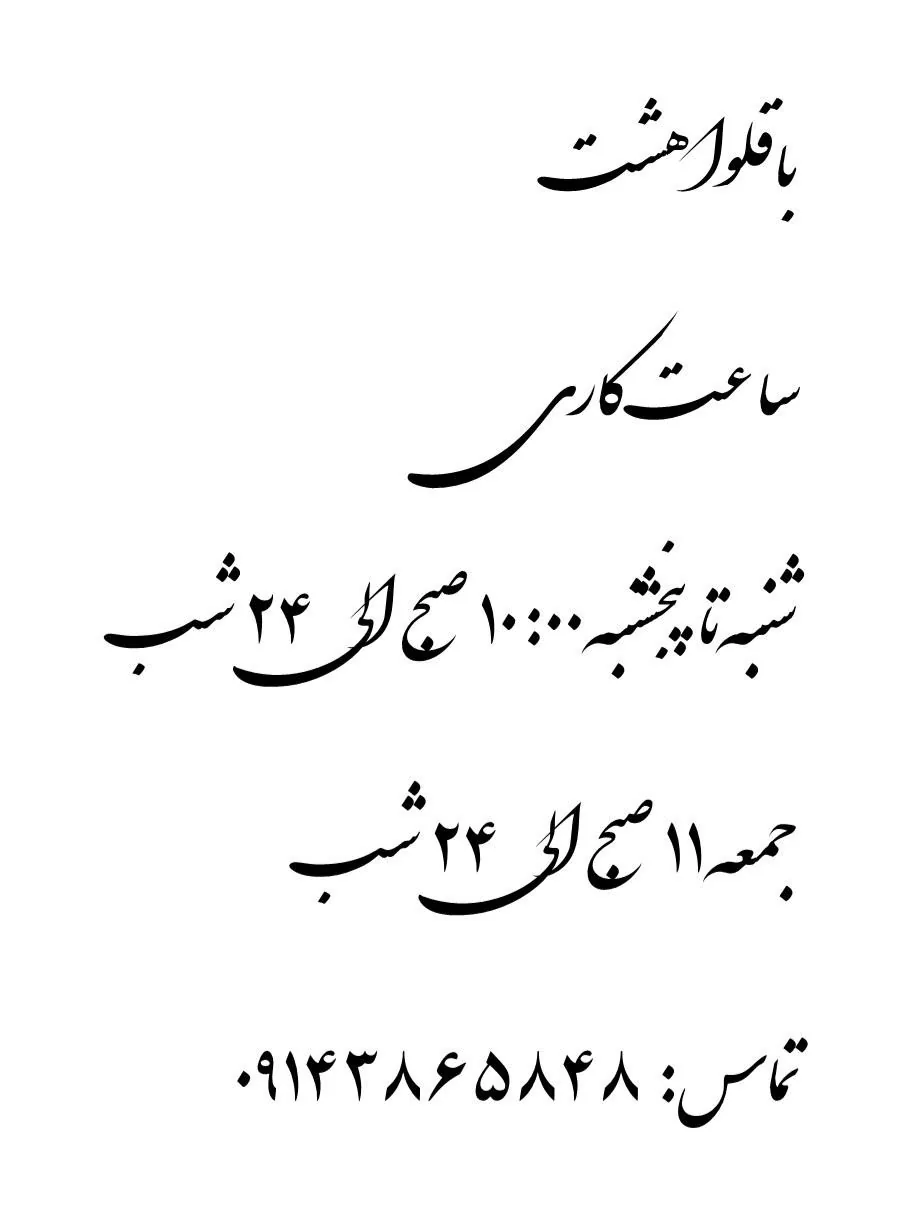 باقلوا هشت
ساعت کاری
شنبه تا پنجشبه ۱۰:۰۰ صبح الی ۲۴ شب
جمعه ۱۱ صبح الی ۲۴ شب
تماس: ۰۹۱۴۳۸۶۵۸۴۸